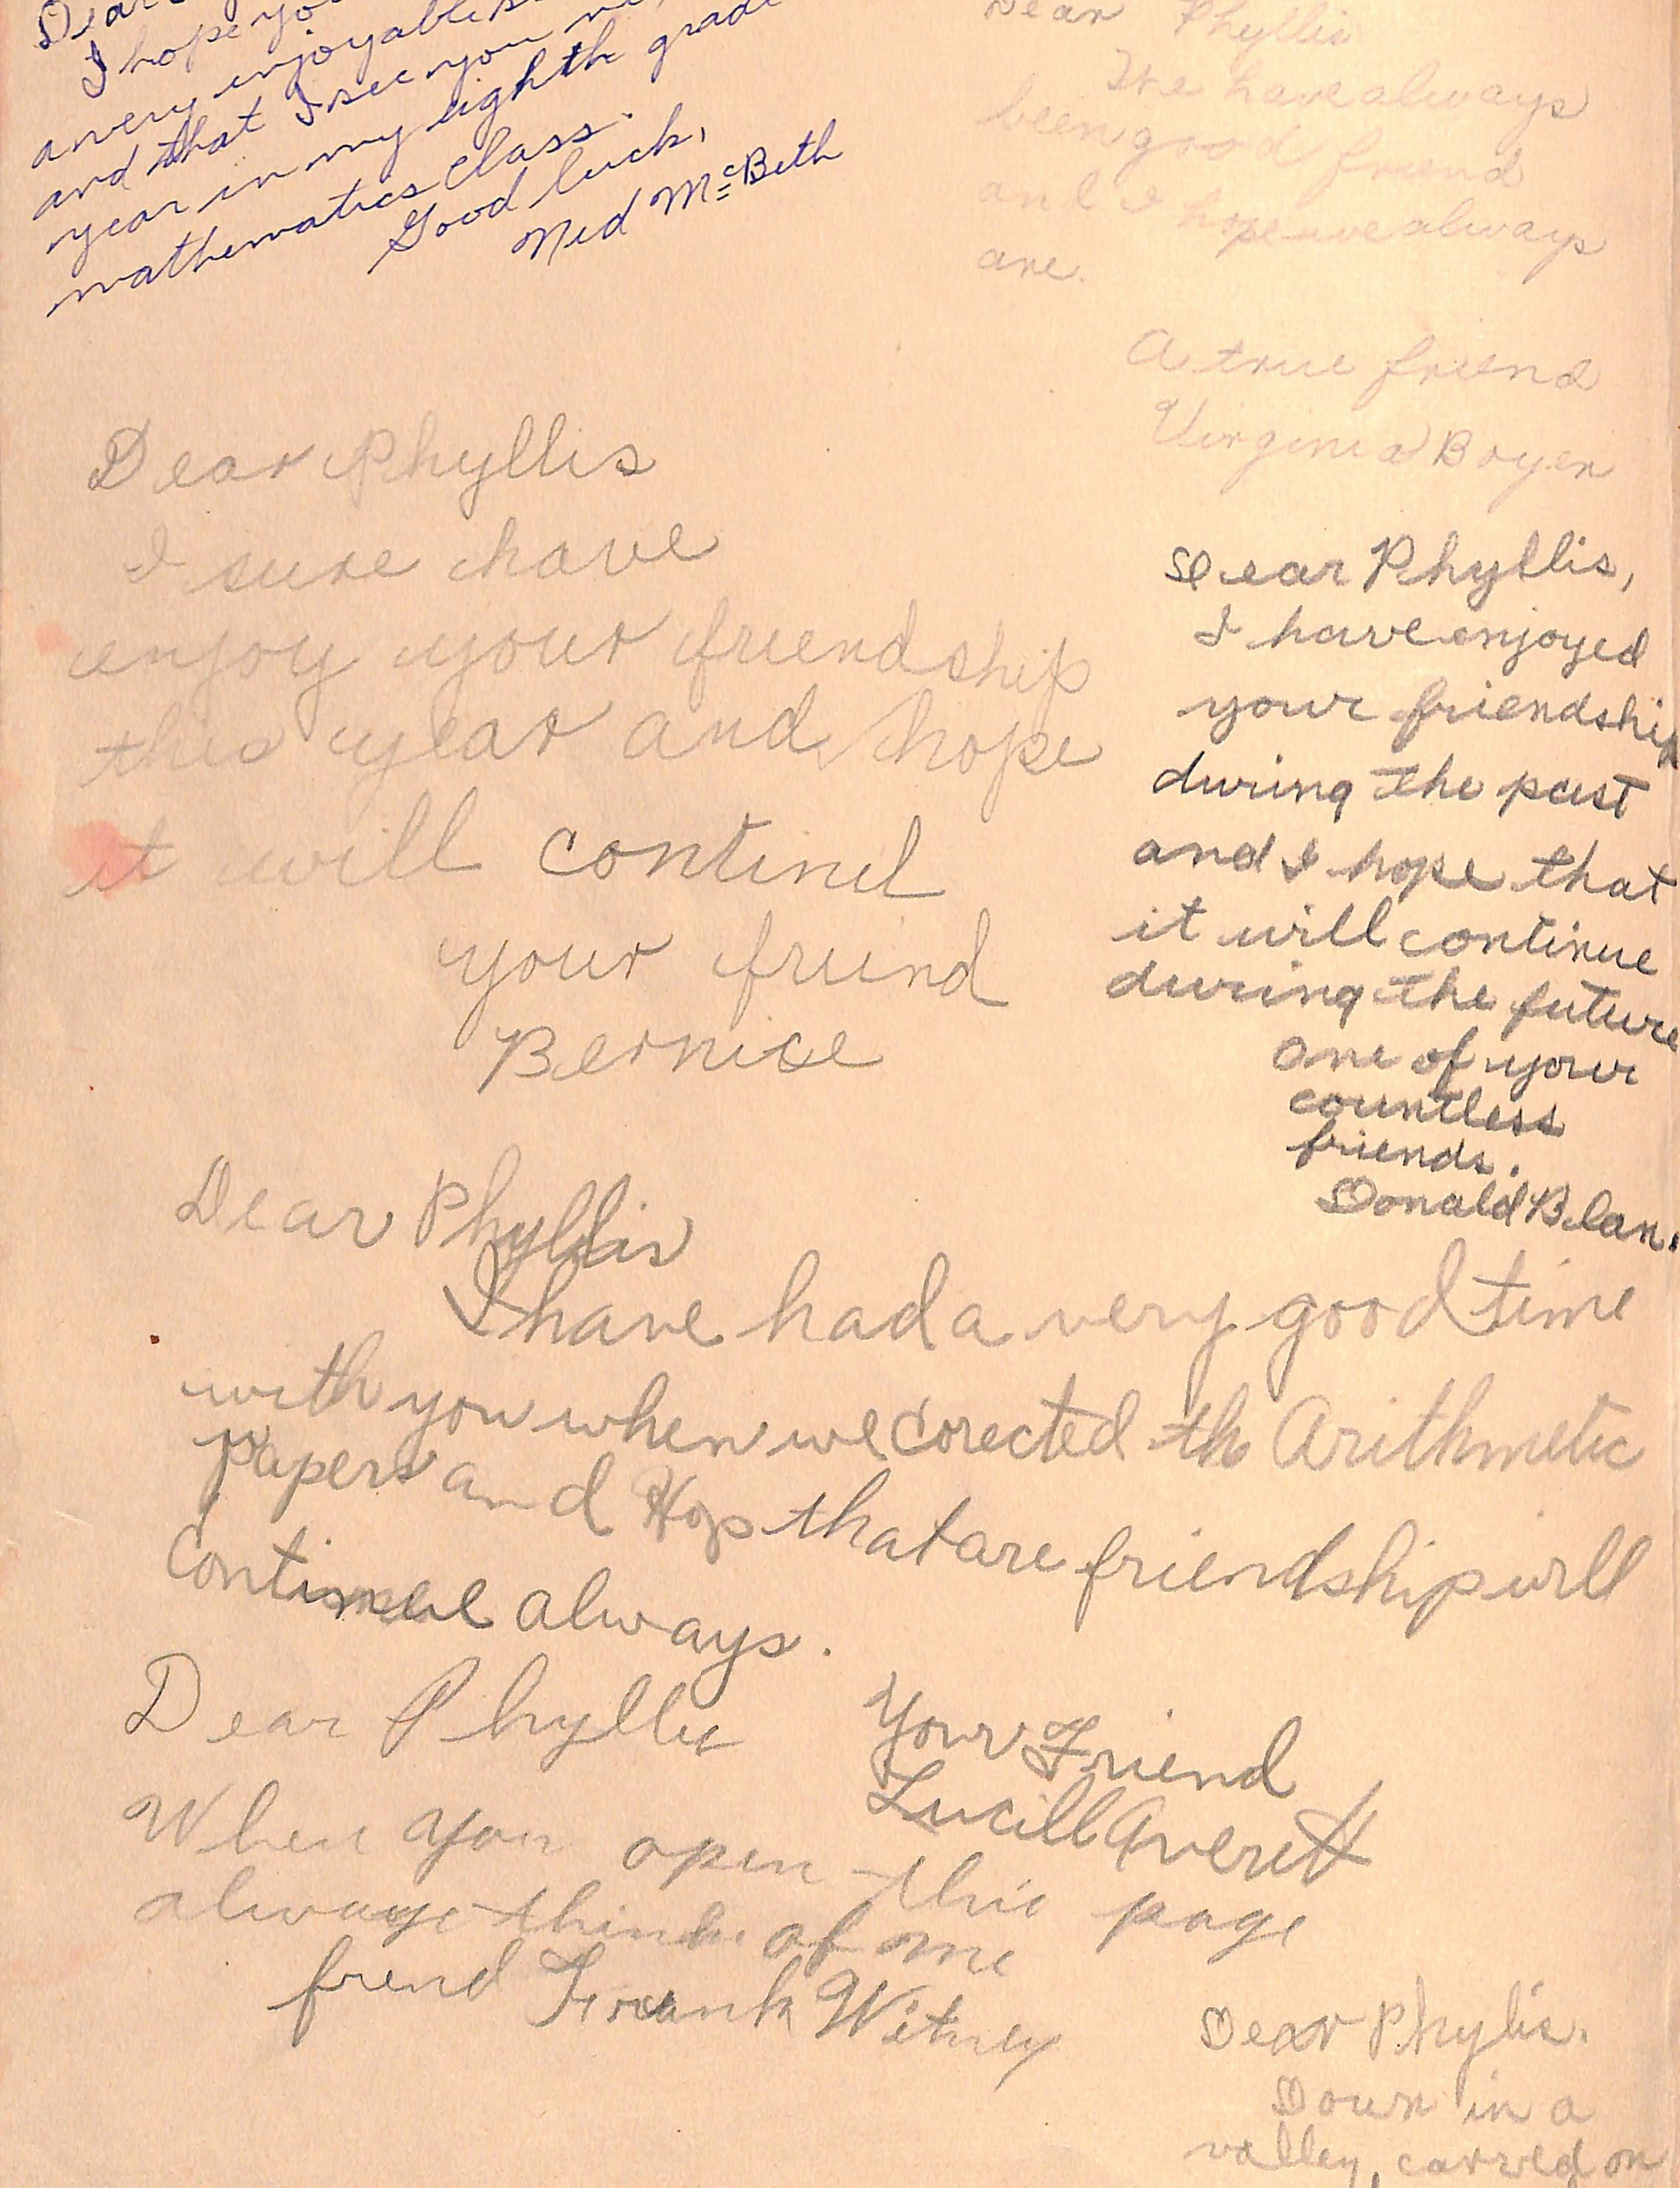 Dear
I hope you
a very enjoyable
and that I see you
year in my eighth grade
mathematics class.
Good luck,
Ned McBeth
Dear Phyllis
We have always
been good friend
and I hope we always
are.
A true friend
Virginia Boyer
Dear Phyllis
I sure have
enjoy your friendship
this year and hope
it will continel
your friend
Bernice
Dear Phyllis,
I have enjoyed
your friendship
during the past
and I hope that
it will continue
during the future
One of your
countless
friends.
Donald Blan.
Dear Phyllis
I have had a very good time
with you when we corected th Arithmetic
papers and Hop that are friendship will
Continuel always.
Your Friend
Lucill Averett
Dear Phyllis
When you open this page
always think of me
frend Frank Witney
Dear Phylis.
Down in a
valley, carved on